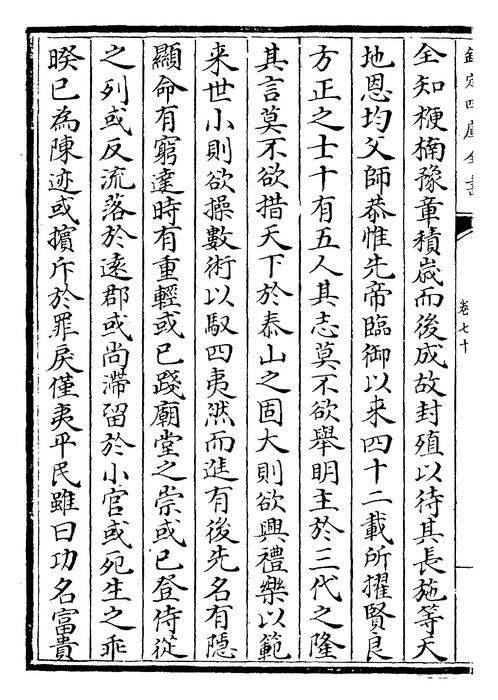 欽定四庫全書
卷七十
全知楩楠豫章積歳而後成故封殖以待其長施等天
地恩均父師恭惟先帝臨御以来四十二載所擢賢良
方正之士十有五人其志莫不欲舉明主於三代之隆
其言莫不欲措天下於泰山之固大則欲興禮樂以範
来世小則欲操數術以馭四夷然而進有後先名有隱
顯命有窮達時有重輕或已踐廟堂之崇或已登侍從
之列或反流落於逺郡或尚滯留於小官或死生之乖
暌已為陳迹或擯斥於罪戾僅夷平民雖曰功名富貴